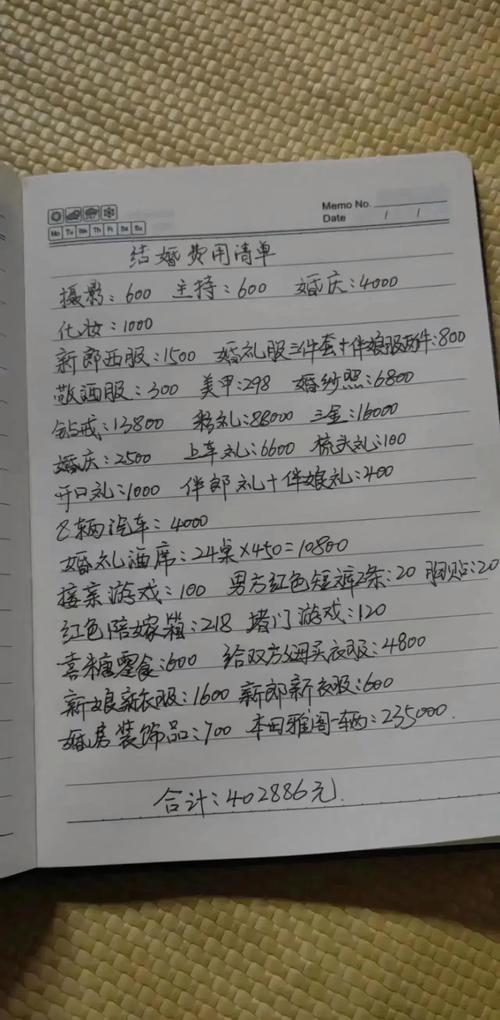 Memo No.
Mo Tu We Th Fr Sa Su
Date / /
结婚费用清单
摄影:600 主持:600 婚庆:4000
化妆:1000
新郎西服:1500 婚礼服三件套+伴娘服两件:800
敬酒服:300 美甲:298 婚纱照:6800
钻戒:13800 彩礼:88000 三金:16000
婚庆:2500 上车礼:6600 梳头礼:100
开口礼:1000 伴郎礼+伴娘礼:400
8辆汽车:4000
婚礼酒席:24桌×450=10800
接亲游戏:100 男方红色短裤2条:20 胸贴:20
红色陪嫁箱:218 堵门游戏:120
喜糖零食:600 给双方父母买衣服:4800
新娘新衣服:1600 新郎新衣服:600
婚房装饰品:700 本田雅阁一辆:235000.
合计:402886元.